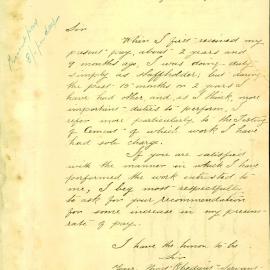 Sir
When I first received my
present pay, about 2 years and
9 months ago I was doing duty
simply as staffholder, but during
the past 15 months or 2 years I
have had other and, as I think, more
important duties to perform, I
refer more particularly to the Testing
of Cement of which work I have
had sole charge.
If you are satisfied
with the manner in which I have
performed the work entrusted to
me, I beg most respectfully
to ask for your recommendation
for some increase in my present
rate of pay.
I have the honor to be
Sir
Your Most Obedient Servant